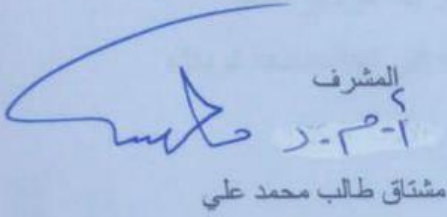 المشرف
أ.م.د
مشتاق طالب محمد علي